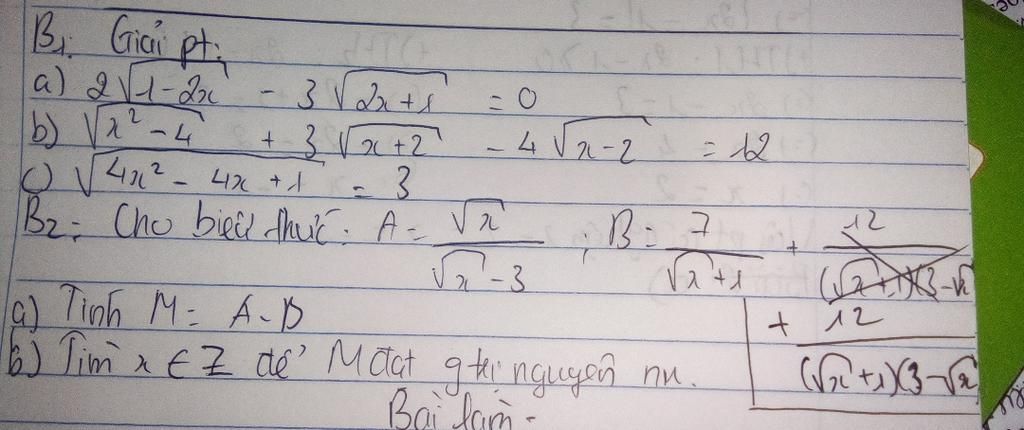 B1: Giải pt:
a) 2√(1-2x) - 3√(2x+1) = 0
b) √(x² - 4) + 3√(x+2) - 4√(x-2) = 12
c) √(4x² - 4x + 1) = 3
B2: Cho biểu thức: A = √x / (√x - 3) ; B = 7 / (√x + 1) + 12 / (√x + 1)(3 - √x
+ 12 / (√x + 1)(3 - √x
a) Tính M = A - B
b) Tìm x ∈ Z để M đạt g trị nguyên nn.
Bài làm -